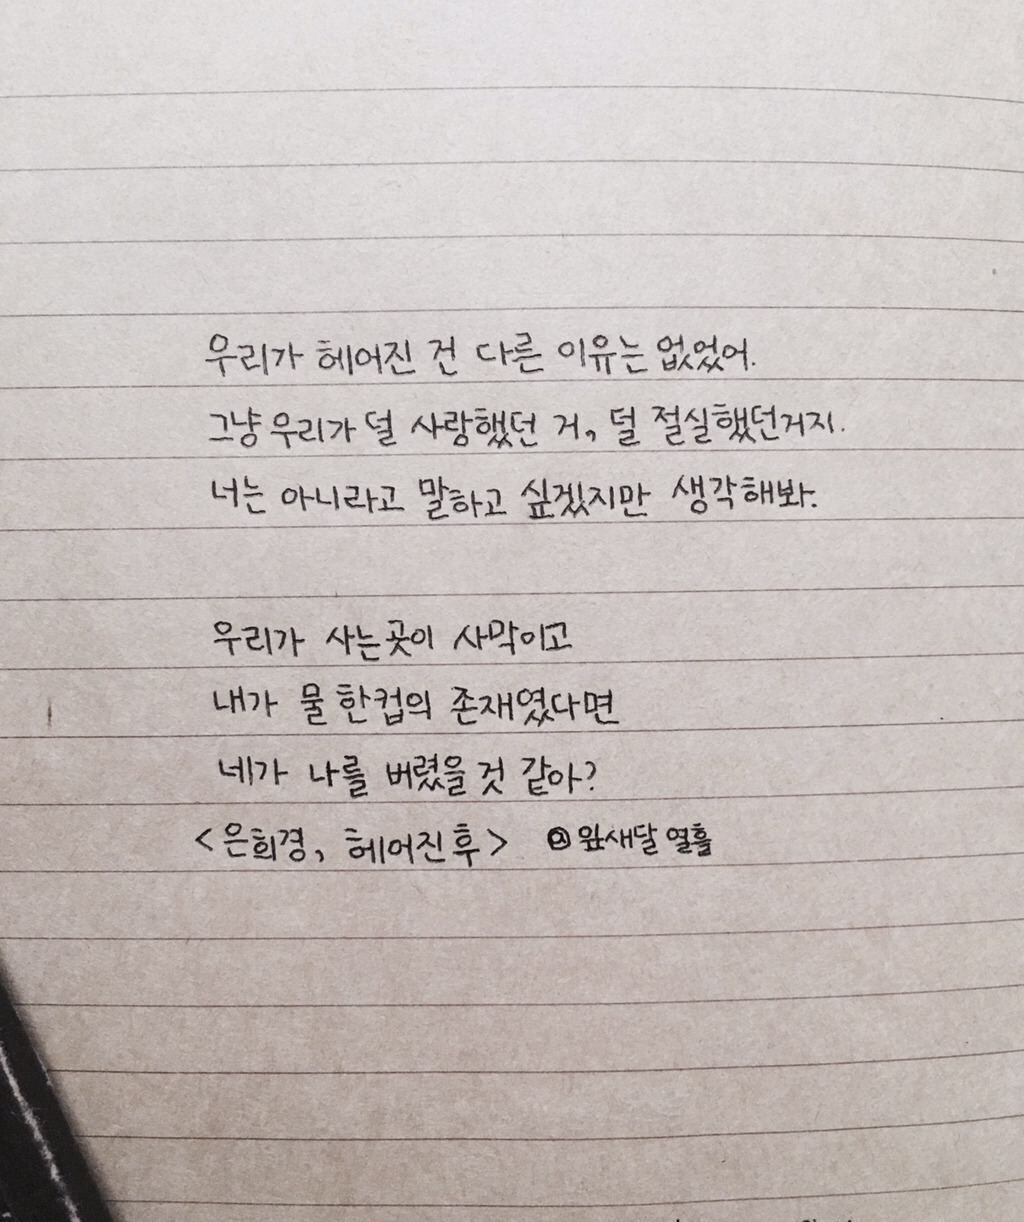 우리가 헤어진 건 다른 이유는 없었어.
그냥 우리가 덜 사랑했던 거, 덜 절실했던거지.
너는 아니라고 말하고 싶겠지만 생각해봐.
우리가 사는곳이 사막이고
내가 물 한컵의 존재였다면
네가 나를 버렸을 것 같아?
<은희경, 헤어진 후> 앞새달 열흘